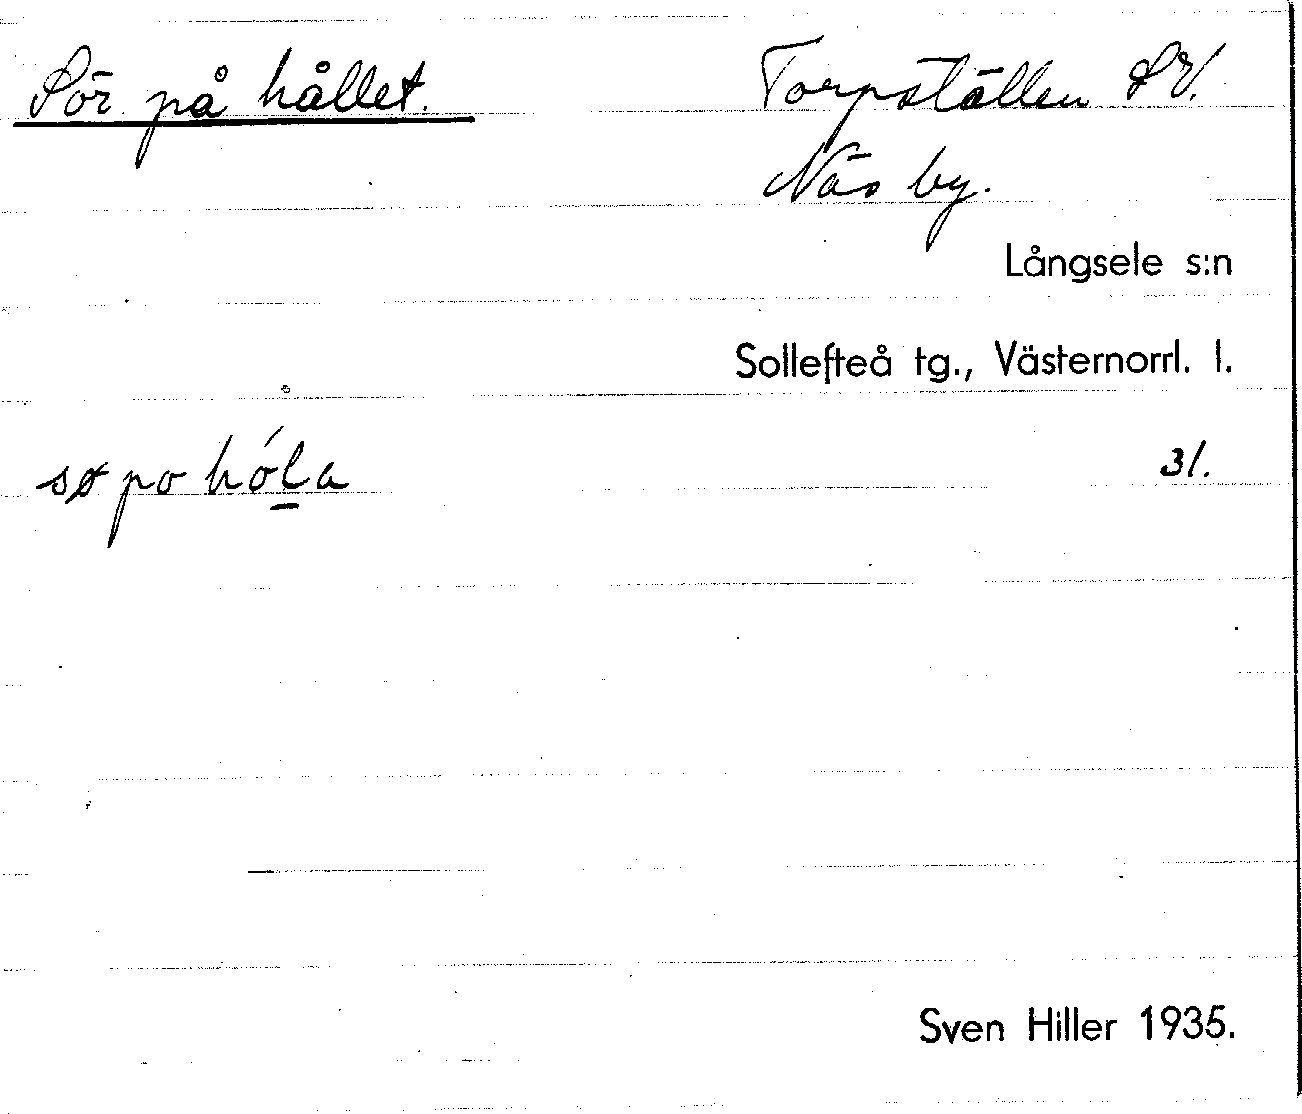 Sör på hållet.
Torpställen SV.
Näs by.
Långsele s:n
Sollefteå tg., Västernorrl. l.
sø po hóla
31.
Sven Hiller 1935.